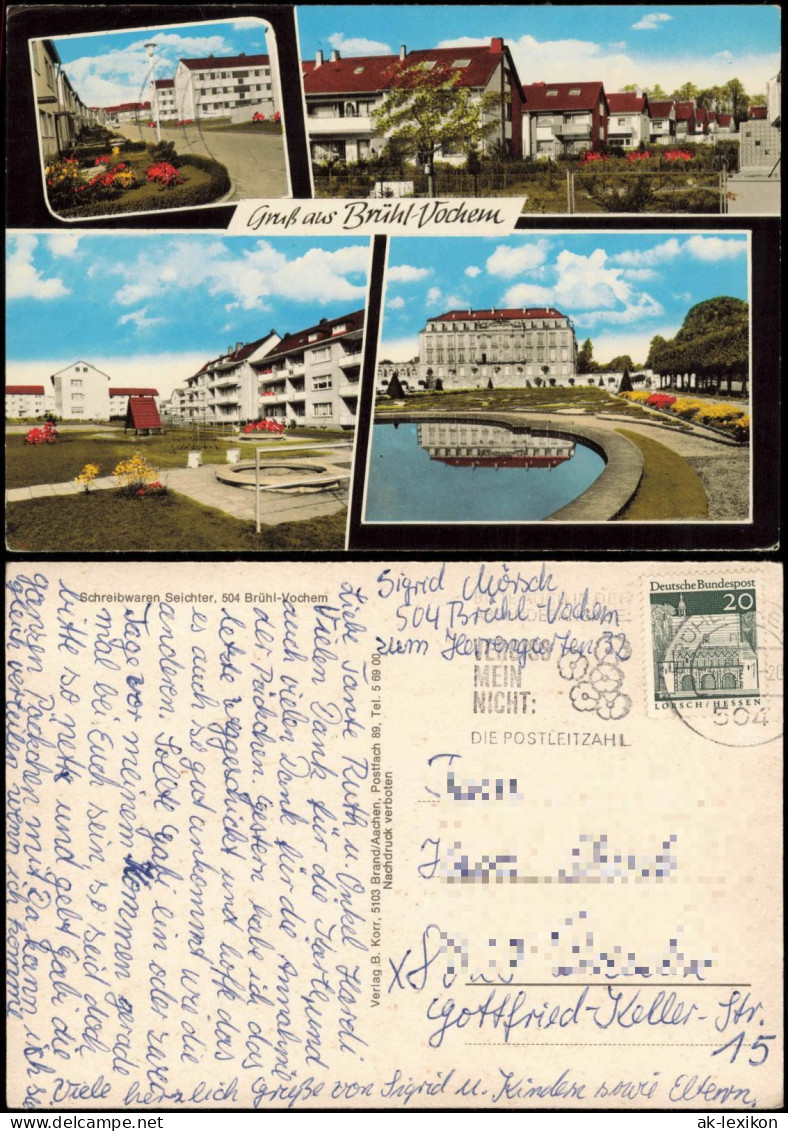 Gruß aus Brühl-Vochem
Schreibwaren Seichter, 504 Brühl-Vochem
Liebe Tante Ruth u. Onkel Hardi
Vielen Dank für die Karte und
auch vielen Dank für die Annahme
der Päckchen. Gestern habe ich das
letzte weggeschickt und hoffe das
es auch so gut ankommt wie die
anderen. Sollte Gabi ein oder zwei
Tage vor meinem Kommen gerade
mal bei Euch sein, so seid doch
bitte so nett und gebt Gabi die
ganzen Päckchen mit. Da kann ich sie
gleich verteilen wenn ich komme
Viele herzlich Grüße von Sigrid u. Kindern sowie Eltern.
Verlag B. Korr, 5103 Brand/Aachen, Postfach 89, Tel. 5 69 00
Nachdruck verboten
Sigrid Mörsch
504 Brühl-Vochem
zum Herrengarten 32
VERGISS
MEIN
NICHT:
DIE POSTLEITZAHL
Deutsche Bundespost
20
LORSCH/HESSEN
504
X8
Gottfried-Keller-Str.
15
AK ansichtskarten-lexikon.de
ak-lexikon